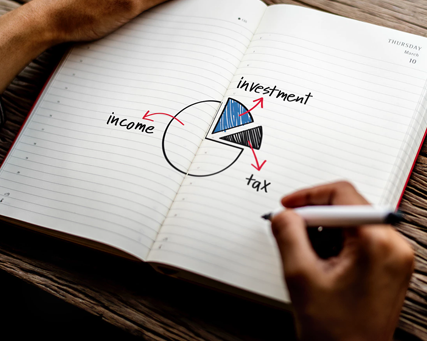 THURSDAY
March
10
investment
income
tax